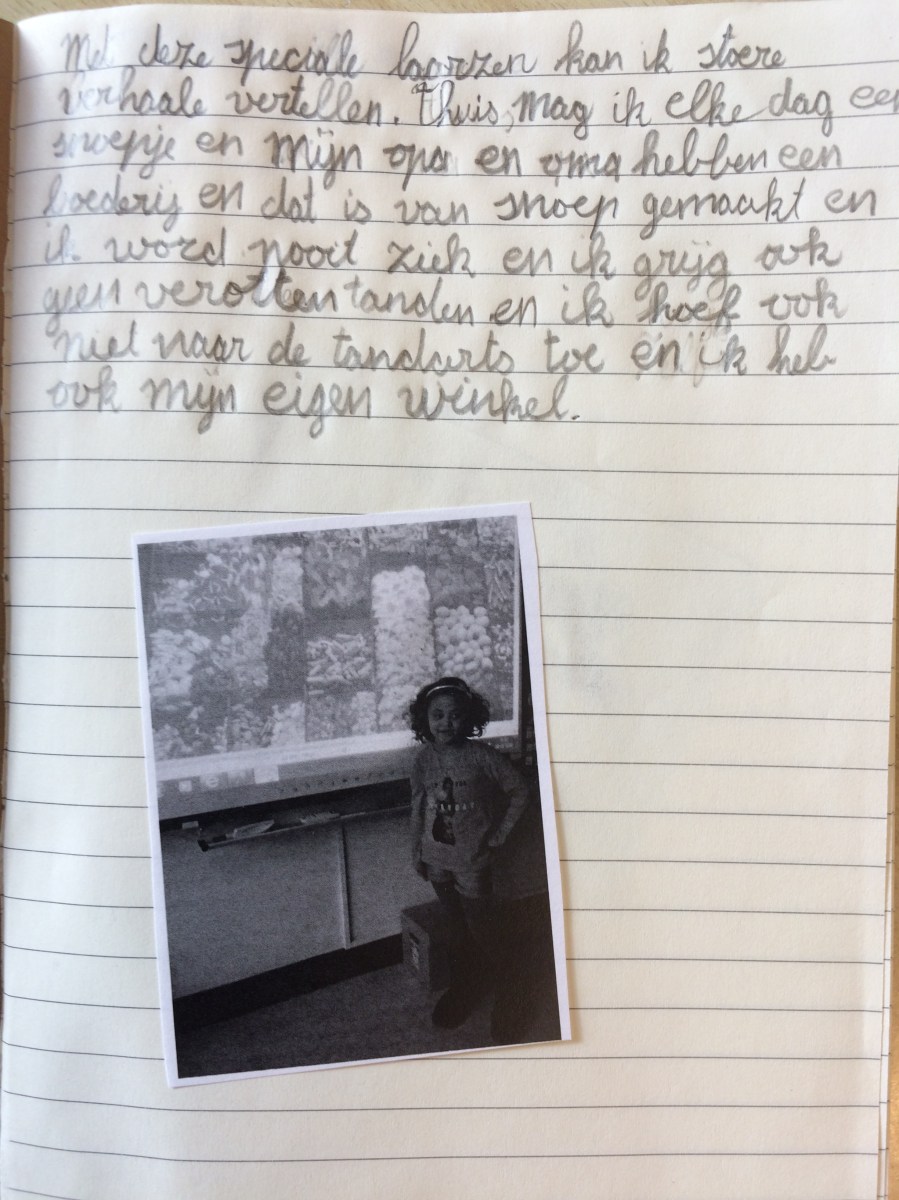 Met deze speciale laarzen kan ik stoere
verhaale vertellen. Thuis, mag ik elke dag een
snoepje en mijn opa en oma hebben een
boederij en dat is van snoep gemaakt en
ik word nooit ziek en ik grijg ook
geen verotten tanden en ik hoef ook
niet naar de tandarts toe en ik heb
ook mijn eigen winkel.